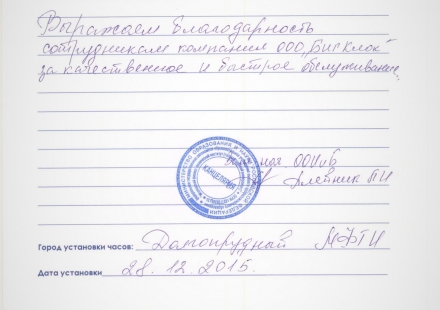 Выражаем благодарность
сотрудникам компании ООО „Вип клок“
за качественное и быстрое обслуживание.
КАНЦЕЛЯРИЯ
Олейник П.И
Город установки часов: Долгопрудный МФТИ
Дата установки 28.12.2015.